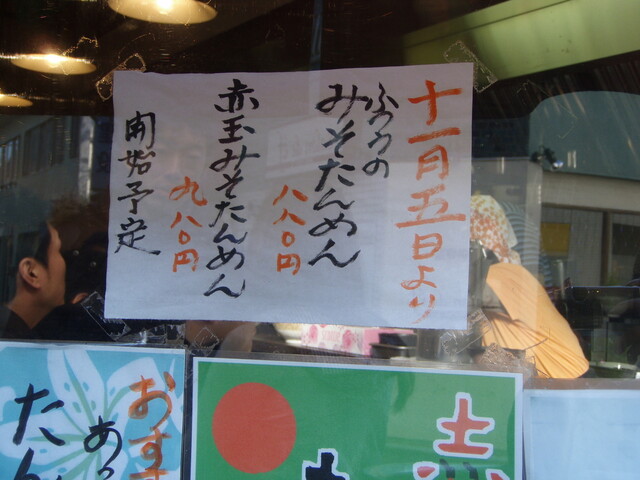 十一月五日より
ふつうの
みそたんめん
八八〇円
赤玉みそたんめん
九八〇円
開始予定
おす
あっ
たん
土